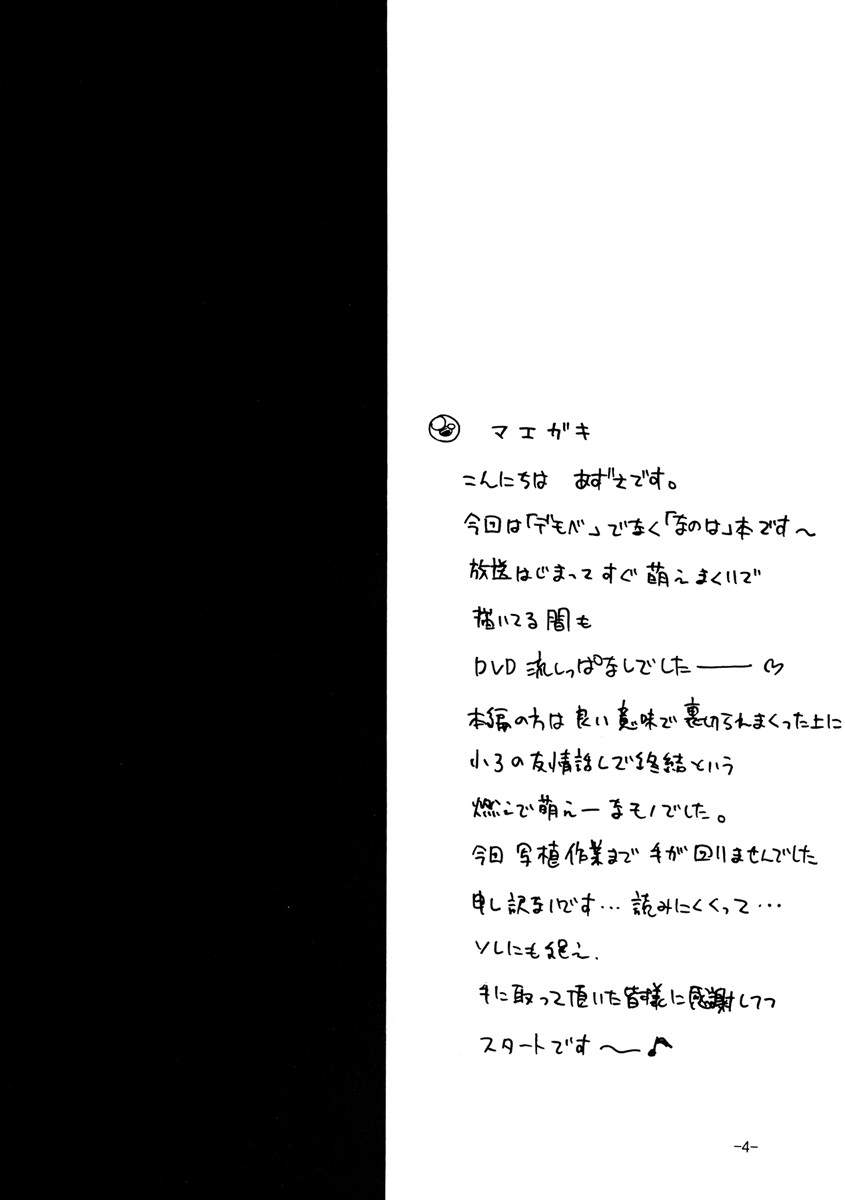 マエガキ
こんにちは あずさです。
今回は「デモベ」でなく「なのは」本です〜
放送はじまってすぐ萌えまくりで
描いてる間も
DVD 流しっぱなしでした——♡
本編の方は良い意味で裏切られまくった上に
小3の友情話しで終結という
燃えで萌えーなモノでした。
今回 写植作業まで手が回りませんでした
申し訳ないです…読みにくくって…
ソレにも絶え.
手に取って頂いた皆様に感謝してつ
スタートです〜♪
-4-